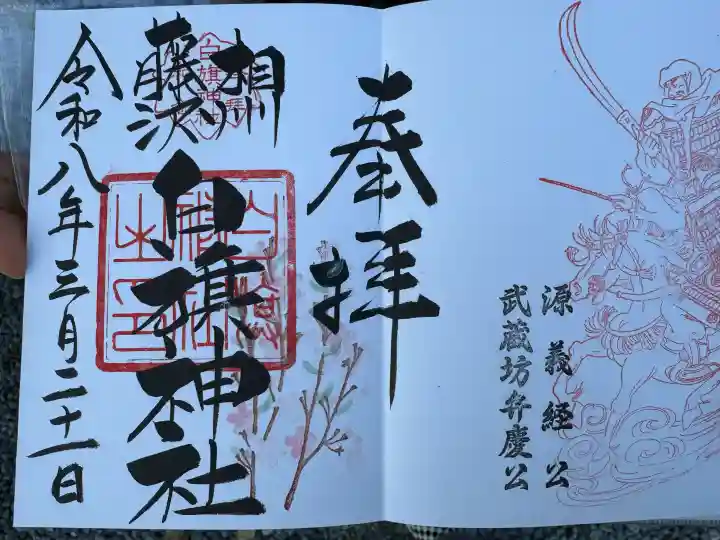 源義経公
武蔵坊弁慶公
奉拝
相州
藤沢
白旗神社
白旗神社
令和八年三月二十一日